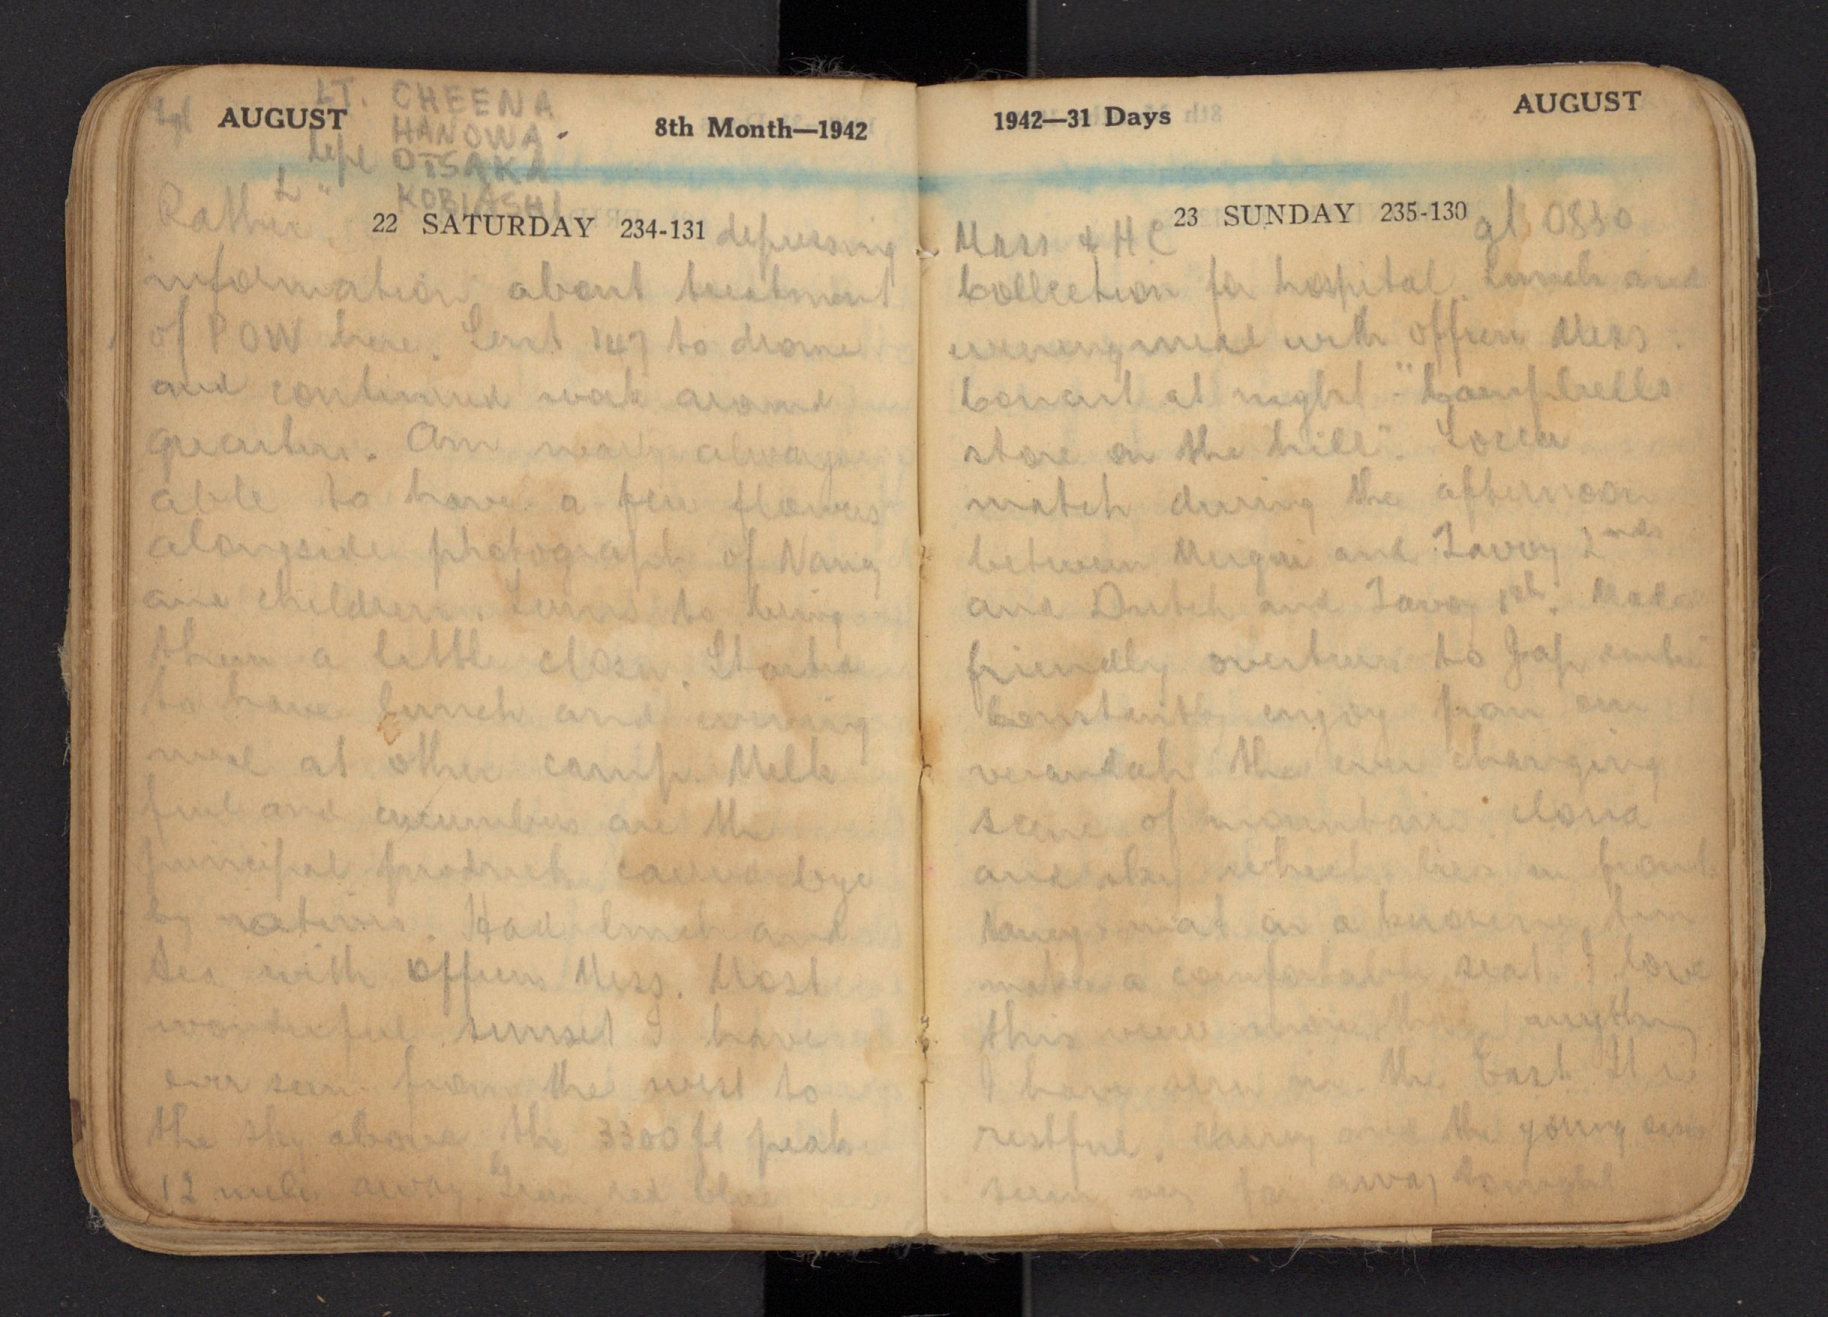 LT. CHEENA
AUGUST 8th Month—1942
HANOWA
OTSAKA
KOBIASHI
22 SATURDAY 234-131
Rather depressing
information about treatment
of POW here. Sent 147 to drome
and continued work around
quarters. Am nearly always
able to have a few flowers
alongside photograph of Nancy
and children. Seems to bring
them a little closer. Started
to have lunch and evening
meal at other camp. Milk
fruit and cucumbers are the
principal products
by natives. Had lunch and
tea with officers Mess. Most
wonderful sunset I have
ever seen from the west to
the sky above the 3300 ft peak
12 miles away. Green red blue
1942—31 Days AUGUST
23 SUNDAY 235-130
Mass & HC at 0830
Collection for hospital. Lunch and
evening meal with officers Mess.
Concert at night - "Campbells
store on the hill". Soccer
match during the afternoon
between Mergui and Tavoy 2nds
and Dutch and Tavoy 1st. Made
friendly overtures to Jap
Constantly enjoy from our
verandah the ever changing
scene of mountain. cloud
and sky which lies in front
mat on a kerosene tin
makes a comfortable seat. I love
this view more than anything
I have seen in the East. It is
restful. Nancy and the young
seem very far away tonight